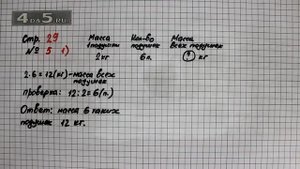 4ДS.RU
Стр. 29
№ 5 1)
Масса 1 подушки Кол-во подушек Масса всех подушек
2 кг 6 п. ? кг
2·6=12(кг)-масса всех подушек
проверка: 12:2=6(п.)
Ответ: масса 6 таких
подушек 12 кг.